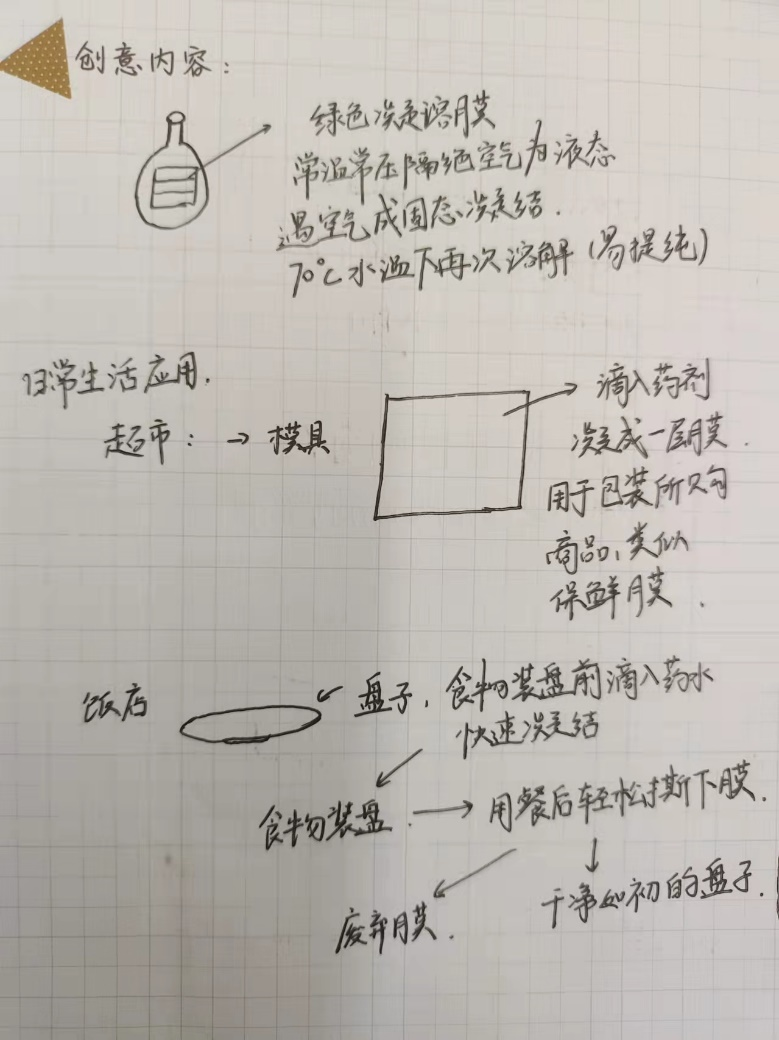 创意内容：
绿色凝溶膜
常温常压隔绝空气为液态
遇空气成固态凝结.
70℃水温下再次溶解(易提纯)
日常生活应用.
超市：→模具
滴入药剂
凝成一层膜.
用于包装所购
商品,类似
保鲜膜.
饭店
盘子,食物装盘前滴入药水
快速凝结
食物装盘.
用餐后轻松撕下膜.
废弃膜.
干净如初的盘子.